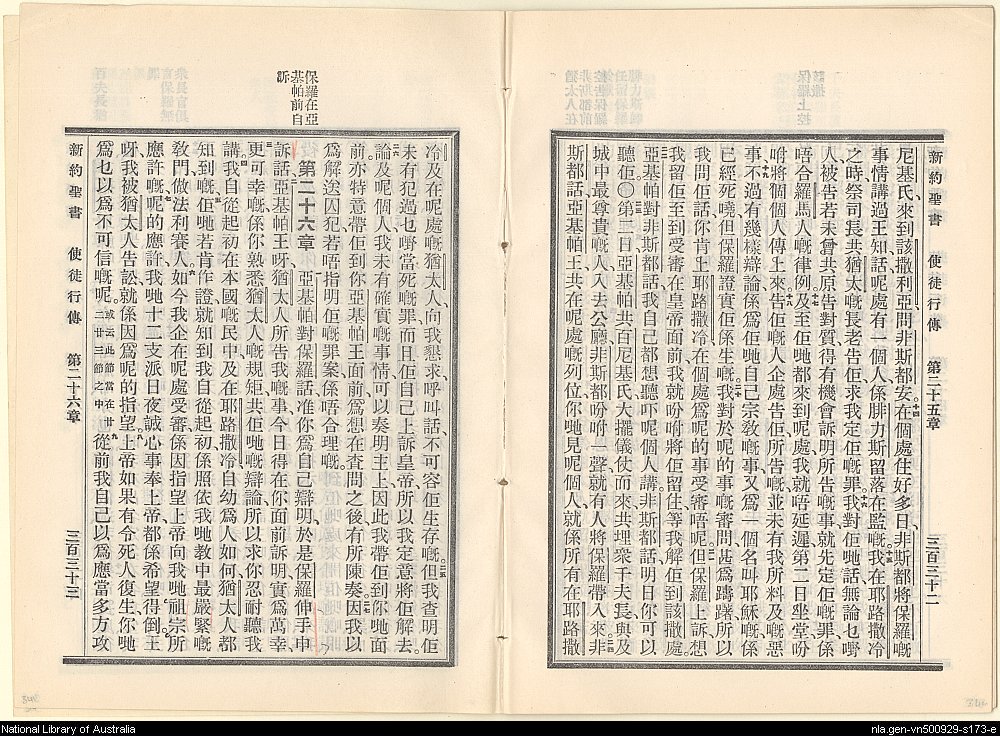 該撒
保羅上控
新約聖書 使徒行傳 第二十五章 三百三十二
尼基氏、來到該撒利亞問非斯都安。十四在個處住好多日、非斯都將保羅嘅
事情講過王知話呢處有一個人、係腓力斯留落在監嘅。十五我在耶路撒冷
之時祭司長共猶太嘅長老告佢求我定佢嘅罪。十六我對佢哋話無論乜嘢
人被告若未曾共原告對質得有機會訴明所告嘅事就先定佢嘅罪係
唔合羅馬人嘅律例。十七及至佢哋都來到呢處我就唔延遲第二日坐堂吩
咐將個個人傳上來。十八告佢嘅人企處告佢所告嘅並未有我所料及嘅惡
事。十九不過有幾樣辯論係爲佢哋自己宗敎嘅事又爲一個名叫耶穌嘅
已經死嘵但保羅證實佢係生嘅。二十我對於呢的事嘅審問甚爲躊躇所以
我問佢話你肯上耶路撒冷在個處爲呢的事受審唔呢。但保羅上訴、想
我留佢至到受審在皇帝面前我就吩咐將佢留住等我解佢到該撒處。
亞基帕對非斯都話我自己都想聽吓呢個人講非斯都話明日你可以
聽佢。〇第二日亞基帕共百尼基氏大擺儀仗而來共埋衆千夫長與及
城中最尊貴嘅人、入去公廳非斯都吩咐一聲就有人將保羅帶入來。非
斯都話亞基帕王共在呢處嘅列位、你哋見呢個人、就係所有在耶路撒
保羅在亞
基帕前自
訴
冷及在呢處嘅猶太人、向我懇求呼叫話不可容佢生存嘅。但我查明佢
未有犯過乜嘢當死嘅罪而且佢自己上訴皇帝所以我定意將佢解去。
論及呢個人我未有確實嘅事情可以奏明主上因此我帶佢到你哋面
前亦特意帶佢到你亞基帕王面前爲想在查問之後有所陳奏因我以
爲解送囚犯若唔指明佢嘅罪案係唔合理嘅。
第二十六章 一亞基帕對保羅話准你爲自己辯明於是保羅伸手申
訴話二亞基帕王呀猶太人所告我嘅事今日得在你面前訴明實爲萬幸、
三更可幸嘅係你熟悉猶太人嘅規矩共佢哋嘅辯論所以求你忍耐聽我
講。四我自從起初在本國嘅民中及在耶路撒冷自幼爲人如何猶太人都
知到嘅。五佢哋若肯作證就知到我自從起初係照依我哋教中最嚴緊嘅
敎門、做法利賽人。六如今我企在呢處受審係因指望上帝向我哋祖宗所
應許嘅。七呢的應許我哋十二支派日夜誠心事奉上帝都係希望得倒。王
呀我被猶太人告訟就係因爲呢的指望。八上帝如果有令死人復生你哋
爲乜以爲不可信嘅呢。或云此節當在廿二廿三節之中九從前我自己以爲應當多方攻
新約聖書 使徒行傳 第二十六章 三百三十三
National Library of Australia
nla.gen-vn500929-s173-e